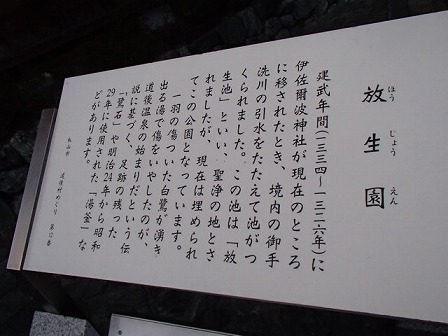 放生園
ほう じょう えん
建武年間(一三三四〜一三三六年)に
伊佐爾波神社が現在のところ
に移されたとき、境内の御手
洗川の引水をたたえて池がつ
くられました。この池は「放
生池」といい、聖浄の地とさ
れましたが、現在は埋められ
てこの公園となっています。
一羽の傷ついた白鷺が湧き
出る湯で傷をいやしたのが、
道後温泉の始まりだという伝
説に基づく、足跡の残った
「鷺石」や明治24年から昭和
29年に使用された「湯釜」な
どがあります。
松山市 道後村めぐり